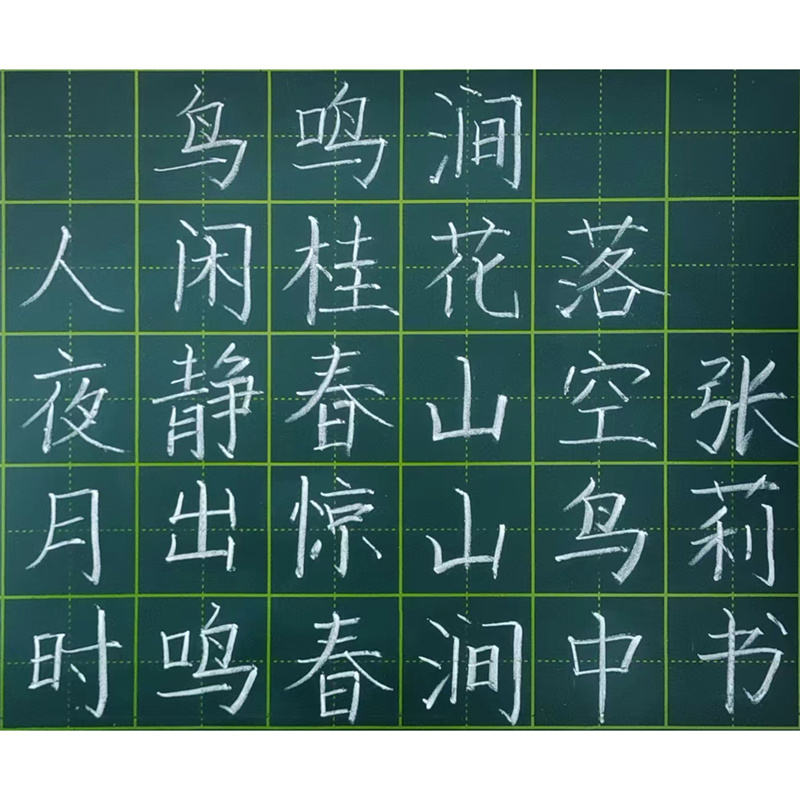 鸟鸣涧
人闲桂花落
夜静春山空
月出惊山鸟
时鸣春涧中
张莉书